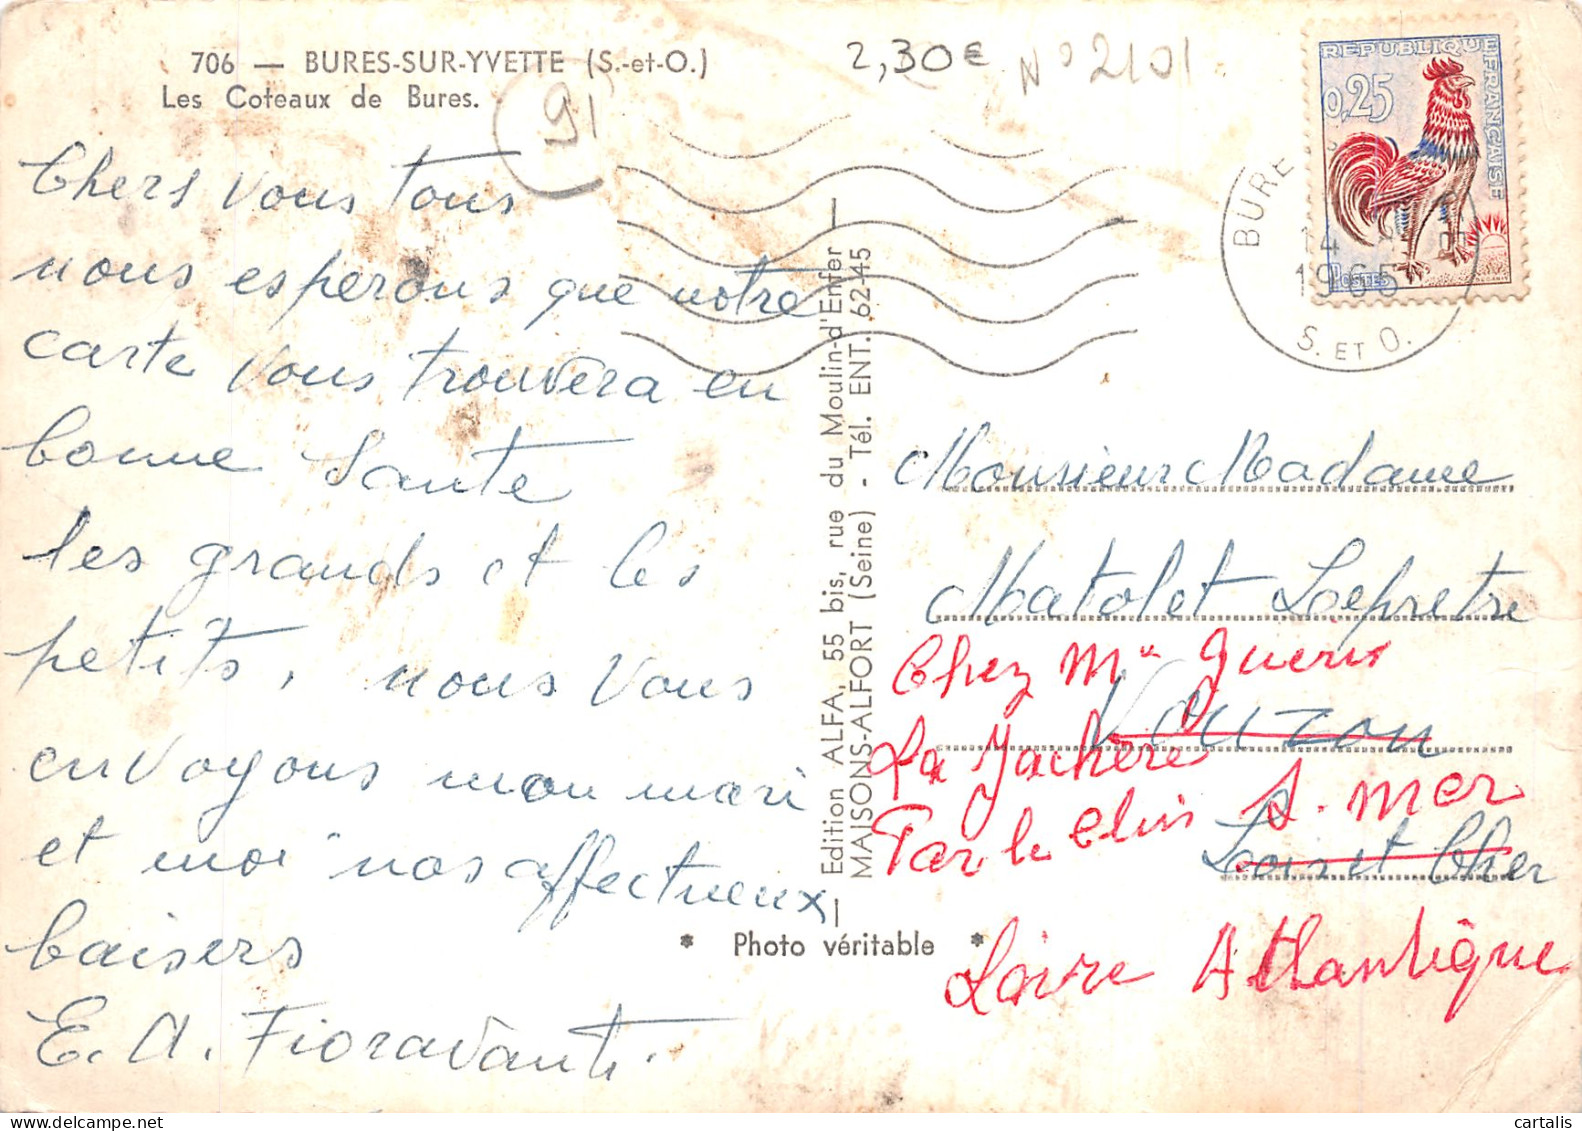 706 — BURES-SUR-YVETTE (S.-et-O.)
Les Coteaux de Bures.
2,30€
N° 2101
91
REPUBLIQUE FRANÇAISE
0,25
POSTES
BURE
14
1965
S. ET O.
Chers vous tous
nous esperons que notre
carte vous trouvera en
bonne Sante
les grands et les
petits, nous vous
envoyons mon mari
et moi nos affectueux
baisers
E. A. Fioravanti.
Edition ALFA, 55 bis, rue du Moulin-d'Enfer
MAISONS-ALFORT (Seine) - Tél. ENT. 62-45
* Photo véritable *
Monsieur Madame
Matolet Lepretre
Chez Me Guerin
Vouzon
La Jachère
Par le Clin S. Mer
Loir et Cher
Loire Atlantique
cartalis